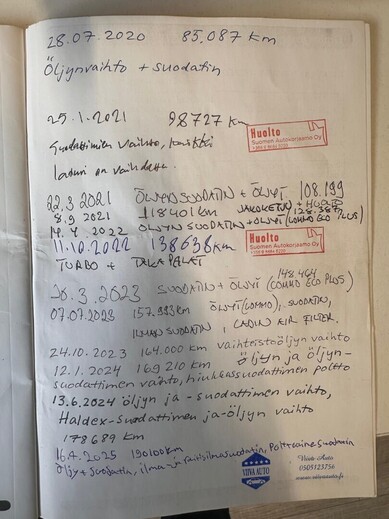 28.07.2020 85.087 km
Öljynvaihto + suodatin
25.1.2021 98727 km
Suodattimien vaihto, kaikki
laturi on vaihdettu.
Huolto
Suomen Autokorjaamo Oy
22.3 2021 ÖLJYNSUODATIN + ÖLJYT 108.199
8.9 2021 118401 km JAKOKETJU + HUOLTO
14.4.2022 ÖLJYN SUODATIN + ÖLJYT (COMMO ECO PLUS) 128.385
11.10.2022 138638 km
Huolto
Suomen Autokorjaamo Oy
TURBO + TAKAPALAT
20.3.2023 SUODATIN + ÖLJYT (COMMO ECO PLUS) 148.464
07.07.2023 157.993 km ÖLJYT (COMMO), SUODATIN,
ILMAN SUODATIN, CABIN AIR FILTER.
24.10.2023 164.000 km vaihteistoöljyn vaihto
12.1.2024 169 210 km öljyn ja öljyn-
suodattimen vaihto, hiukkassuodattimen poltto
13.6.2024 öljyn ja -suodattimen vaihto,
Haldex-suodattimen ja-öljyn vaihto
178 689 km
16.4.2025 190100km
Öljy+suodatin, ilma-ja raitisilmasuodatin, Polttoainesuodatin
VIIVA AUTO
Viiva-Auto
0505123756
www.viivaauto.fi